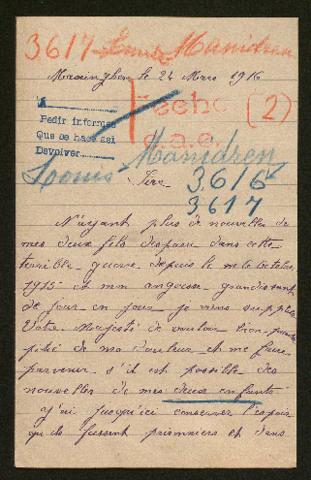 3617 Louis Manidren
Maroinghen le 24 Mars 1916
A
Pedir informes
Que se hace así
Devolver
Fecho
c.a.e.
(2)
Louis Manidren
3616
3617
Sire
N'ayant plus de nouvelles de
mes deux fils disparus dans cette
terrible guerre depuis le mois Octobre
1915 et mon angoisse grandissant
de jour en jour je viens supplier
Votre Majesté de vouloir bien prendre
pitié de ma douleur et me faire
parvenir s'il est possible des
nouvelles de mes deux enfants
J'ai jusqu'ici conservé l'espoir
qu'ils fussent prisonniers et dans